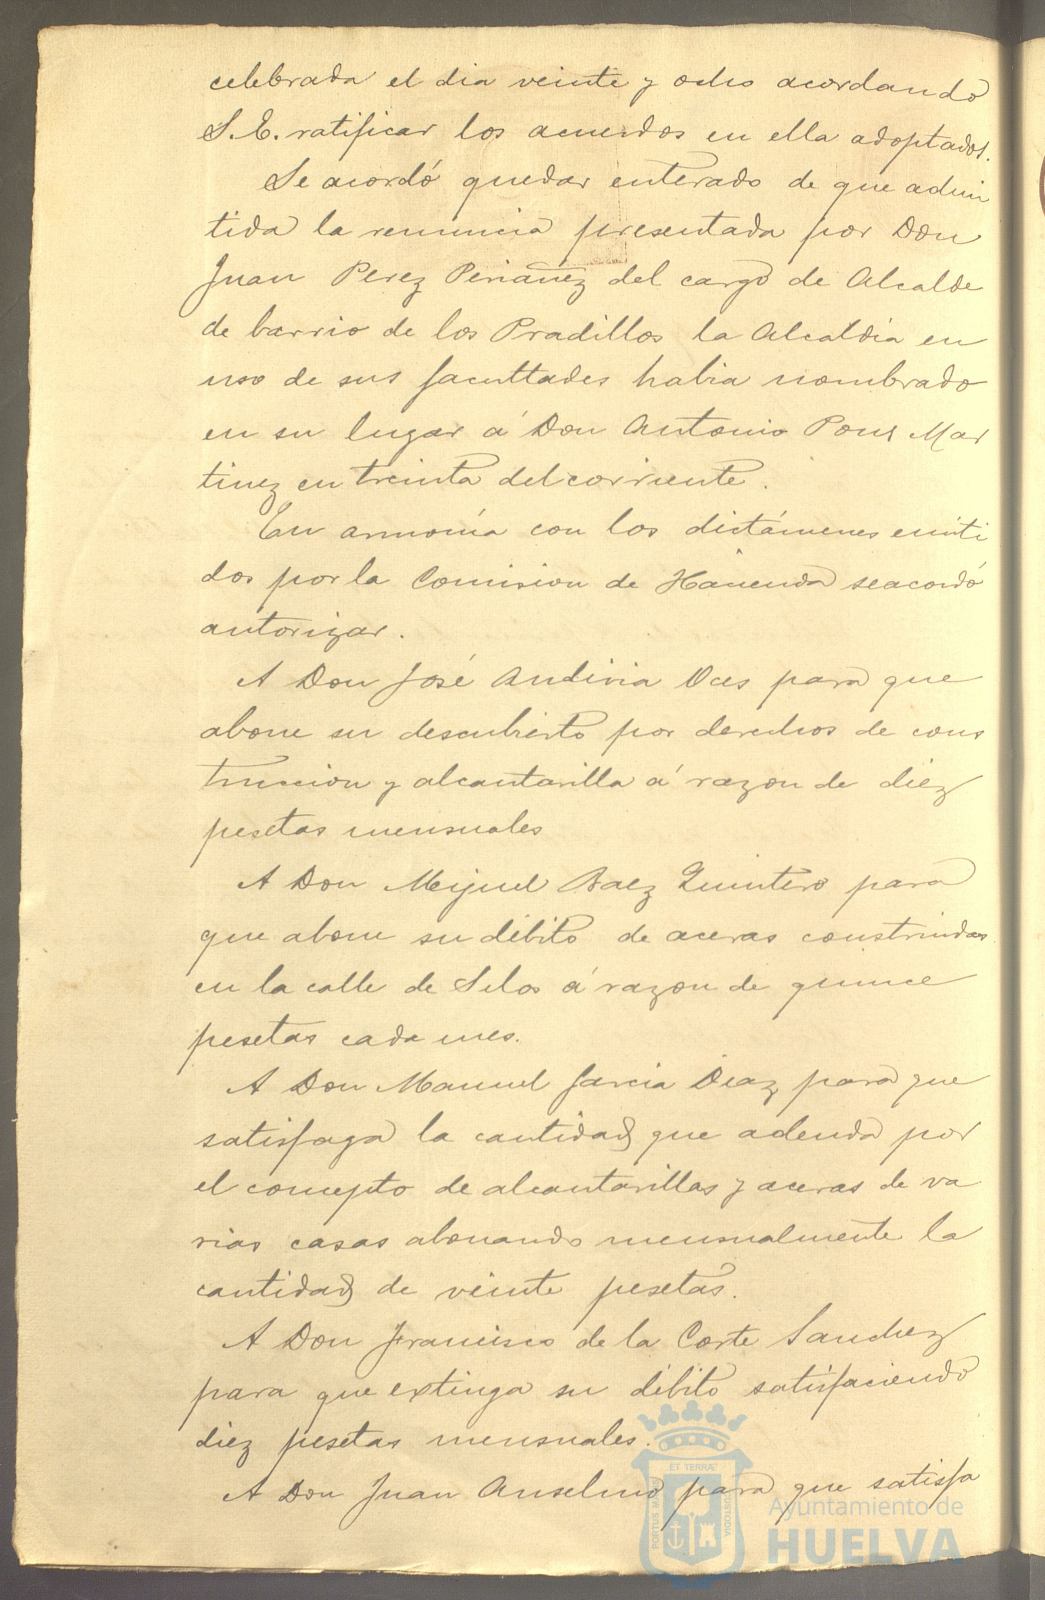 celebrada el dia veinte y ocho acordando
S.E. ratificar los acuerdos en ella adoptados.
Se acordó quedar enterado de que admi
tida la renuncia presentada por Don
Juan Perez Periañez del cargo de Alcalde
de barrio de los Pradillos la Alcaldia en
uso de sus facultades habia nombrado
en su lugar á Don Antonio Pons Mar
tinez en treinta del corriente.
En armonía con los dictámenes emiti
dos por la Comision de Hacienda se acordó
autorizar.
A Don José Andivia para que
abone su descubierto por derechos de cons
truccion y alcantarilla á razon de diez
pesetas mensuales
A Don Miguel Baez Quintero para
que abone su débito de aceras construidas
en la calle de Silos á razon de quince
pesetas cada mes.
A Don Manuel Garcia Diaz para que
satisfaga la cantidad que adeuda por
el concepto de alcantarillas y aceras de va
rias casas abonando mensualmente la
cantidad de veinte pesetas.
A Don Francisco de la Corte Sanchez
para que extinga su débito satisfaciendo
diez pesetas mensuales.
A Don Juan Anselmo para que satisfa
ET TERRÆ
PORTUS MARIS
CUSTODIA
Ayuntamiento de
HUELVA